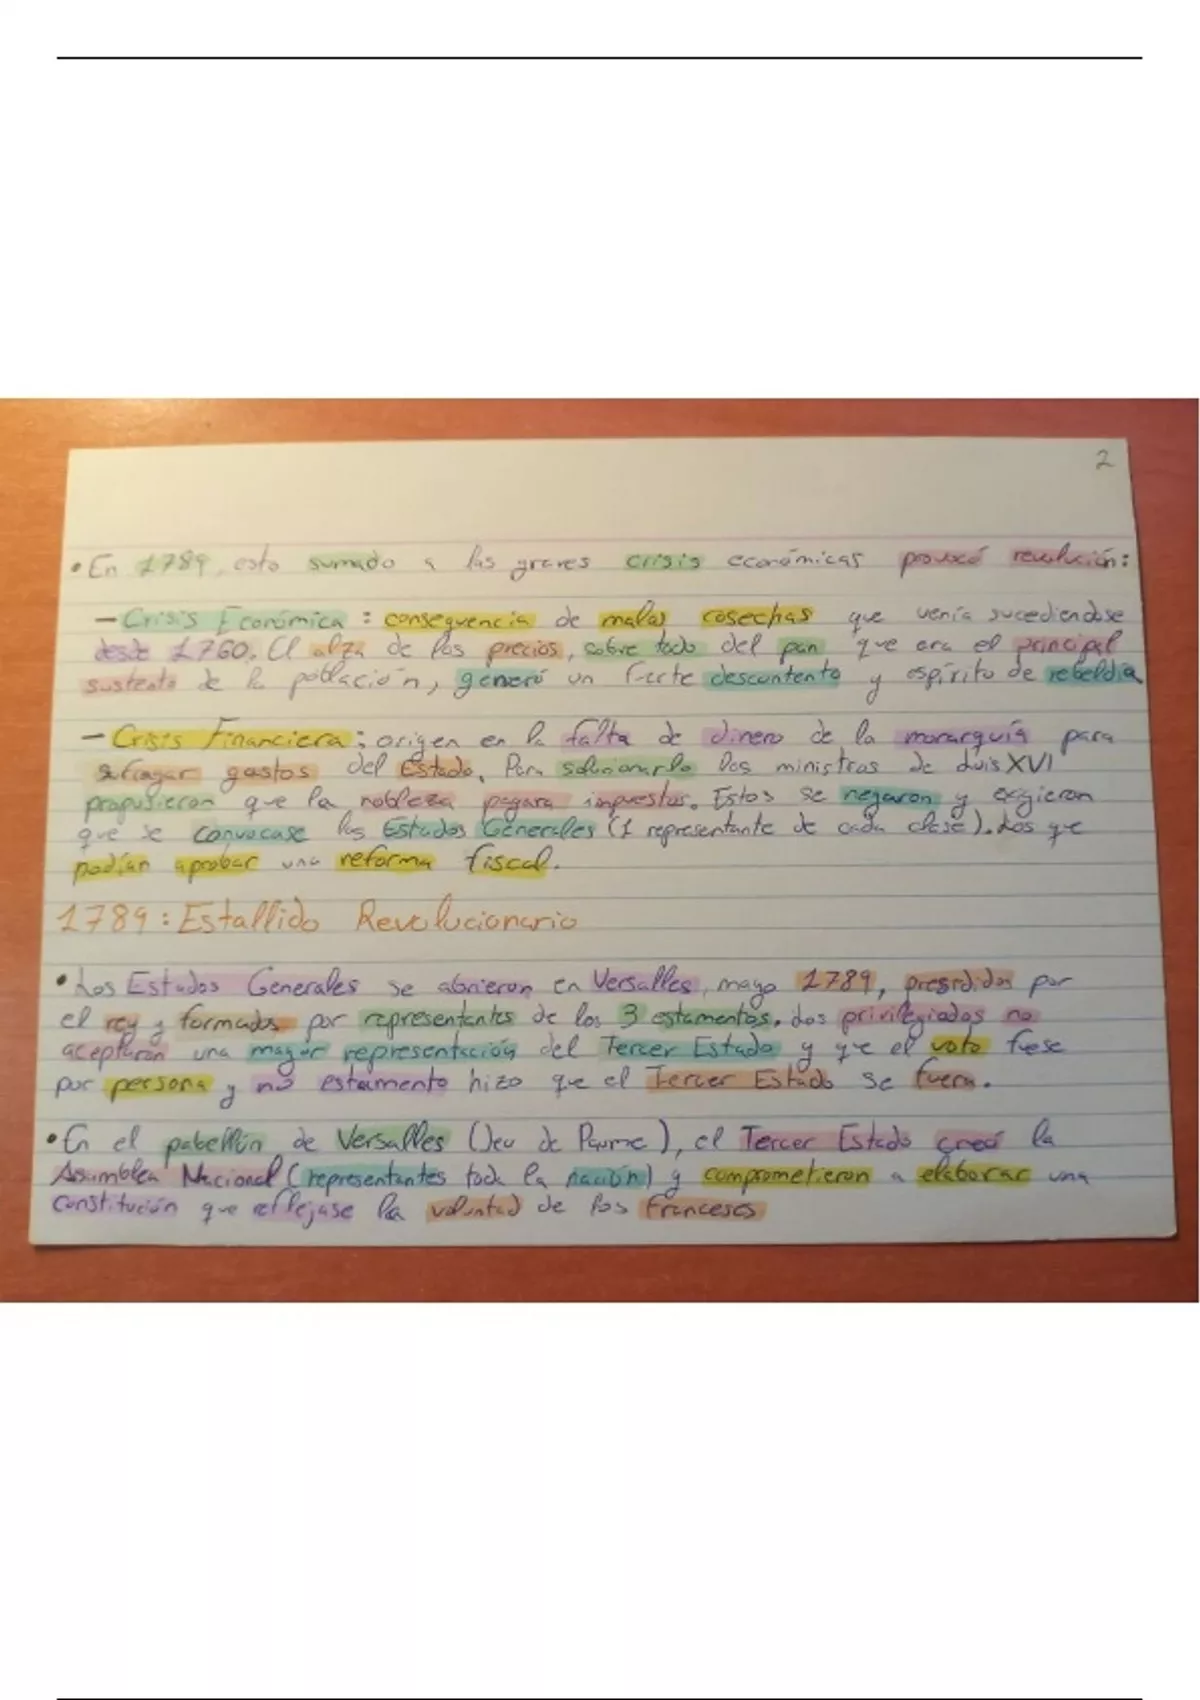 2
• En 1789, esto sumado a las graves crisis económicas provocó revolución:
— Crisis Económica: consequencia de malas cosechas que venía sucediendose
desde 1760. El alza de los precios, sobre todo del pan que era el principal
sustento de la población, generó un fuerte descontento y espíritu de rebeldía
— Crisis Financiera: origen en la falta de dinero de la monarquía para
sufragar gastos del Estado. Para solucionarlo los ministros de Luis XVI
propusieron que la nobleza pagara impuestos. Estos se negaron y exigieron
que se convocase los Estados Generales (1 representante de cada clase). Los que
podían aprobar una reforma fiscal.
1789: Estallido Revolucionario
• Los Estados Generales se abrieron en Versalles, mayo 1789, presididos por
el rey y formados por representantes de los 3 estamentos. Los privilegiados no
aceptaron una mayor representación del Tercer Estado y que el voto fuese
por persona y no estamento hizo que el Tercer Estado se fuera.
• En el pabellón de Versalles (Jeu de Paume), el Tercer Estado creó la
Asamblea Nacional (representantes toda la nación) y comprometieron a elaborar una
constitución que reflejase la voluntad de los franceses